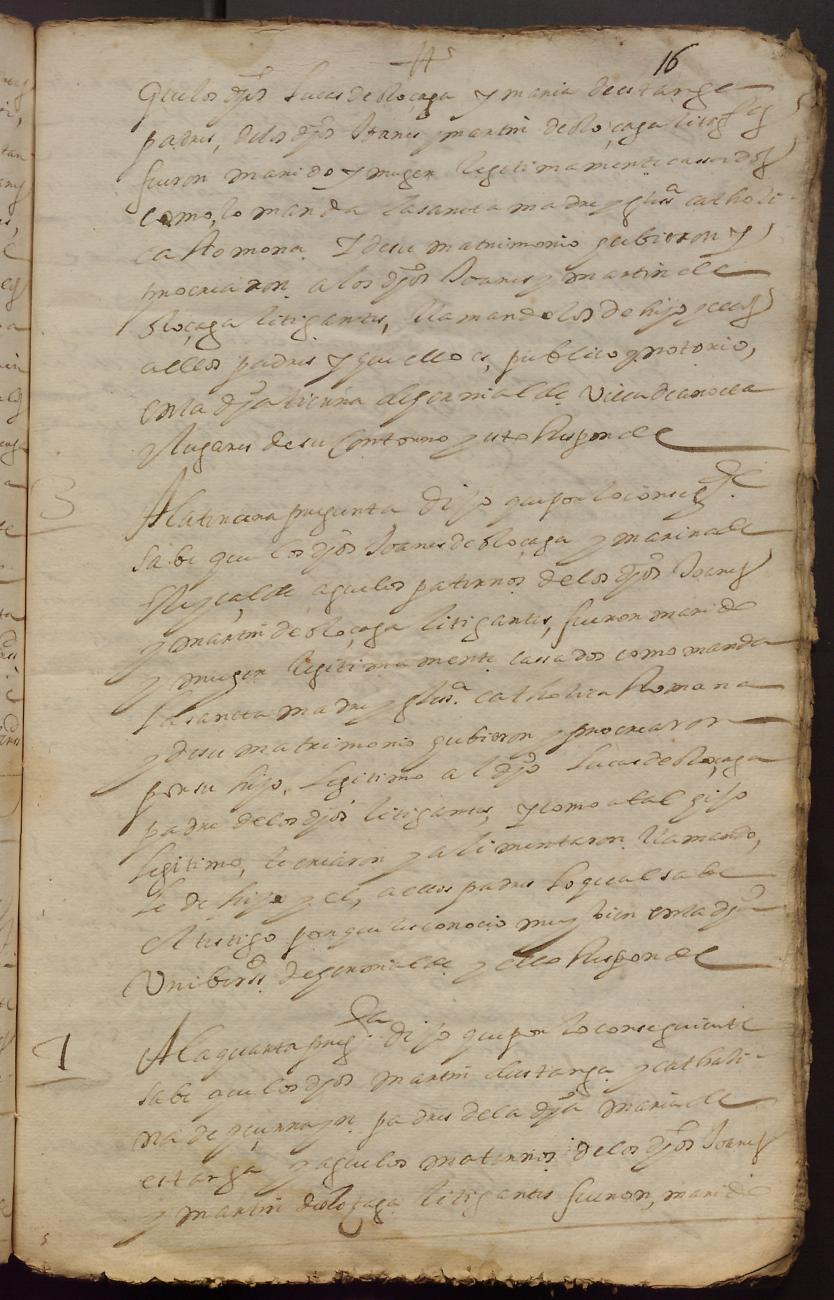 16
Que los dhos Lucas de Oloçaga y maria de estarga
padres, de los dhos Joanes y martin de oloçaga litigtes
fueron marido y muger legitimamente cassados
como lo manda la sancta madre yglia catholi-
ca Romana. Y de su matrimonio hubieron y
procrearon a los dhos Joanes y martin de
oloçaga litigantes, llamandolos de hijos y ellos
a ellos padres y que ello es publico y notorio,
en la dha tierra de hernialde Villa de anoeta
y lugares de su Contorno y esto Responde
3
A la tercera pregunta dijo que por lo consegte
sabe que los dhos Joanes de oloçaga y marina de
aguelos paternos de los dhos Joanes
y martin de oloçaga litigantes, fueron marido
y muger legitimamente cassados como manda
la sancta madre yglia catholica Romana
y de su matrimonio hubieron y procrearon
por su hijo legitimo al dho Lucas de oloçaga
padre de los dhos litigantes, y como a tal hijo
legitimo, le criaron y alimentaron llamando,
le de hijo y el, a ellos padres lo qual sabe
el testigo porque les conocio muy bien en la dha
Unibersd de hernialde y esto Responde
A la quarta pregta dijo que por lo conseguiente
sabe que los dhos martin de estarga y cathali-
na de padres de la dha maria de
estarga y aguelos maternos de los dhos Joanes
y martin de oloçaga litigantes fueron, marido